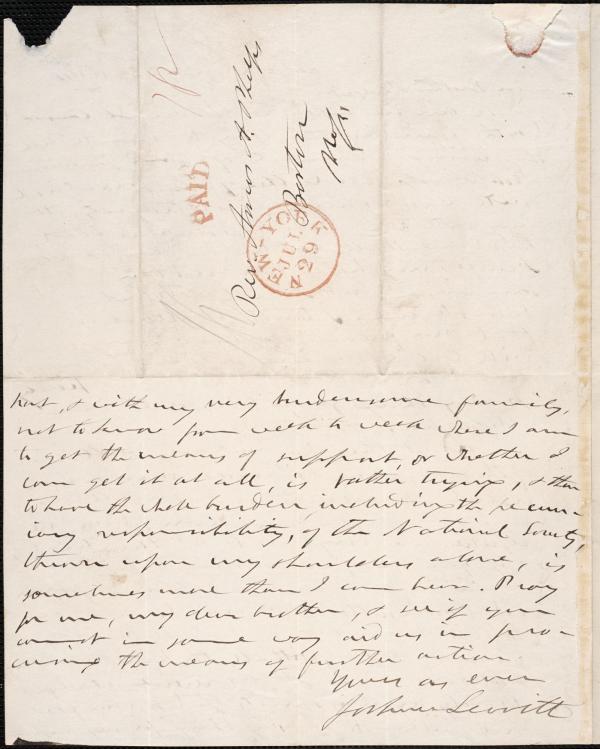 PAID
Rev. Amos A. Phelps
Boston
Mass
NEW-YORK
JUL
29
past, & with my very burdensome family,
not to know from week to week where I am
to get the means of support, or whether I
can get it at all, is rather trying, & then
to have the whole burden, including the pecun-
iary responsibility, of the National Society,
thrown upon my shoulders alone, is
sometimes more than I can bear. Pray
for me, my dear brother, & see if you
cannot in some way aid us in pro-
curing the means of further action.
Yours as ever
Joshua Leavitt